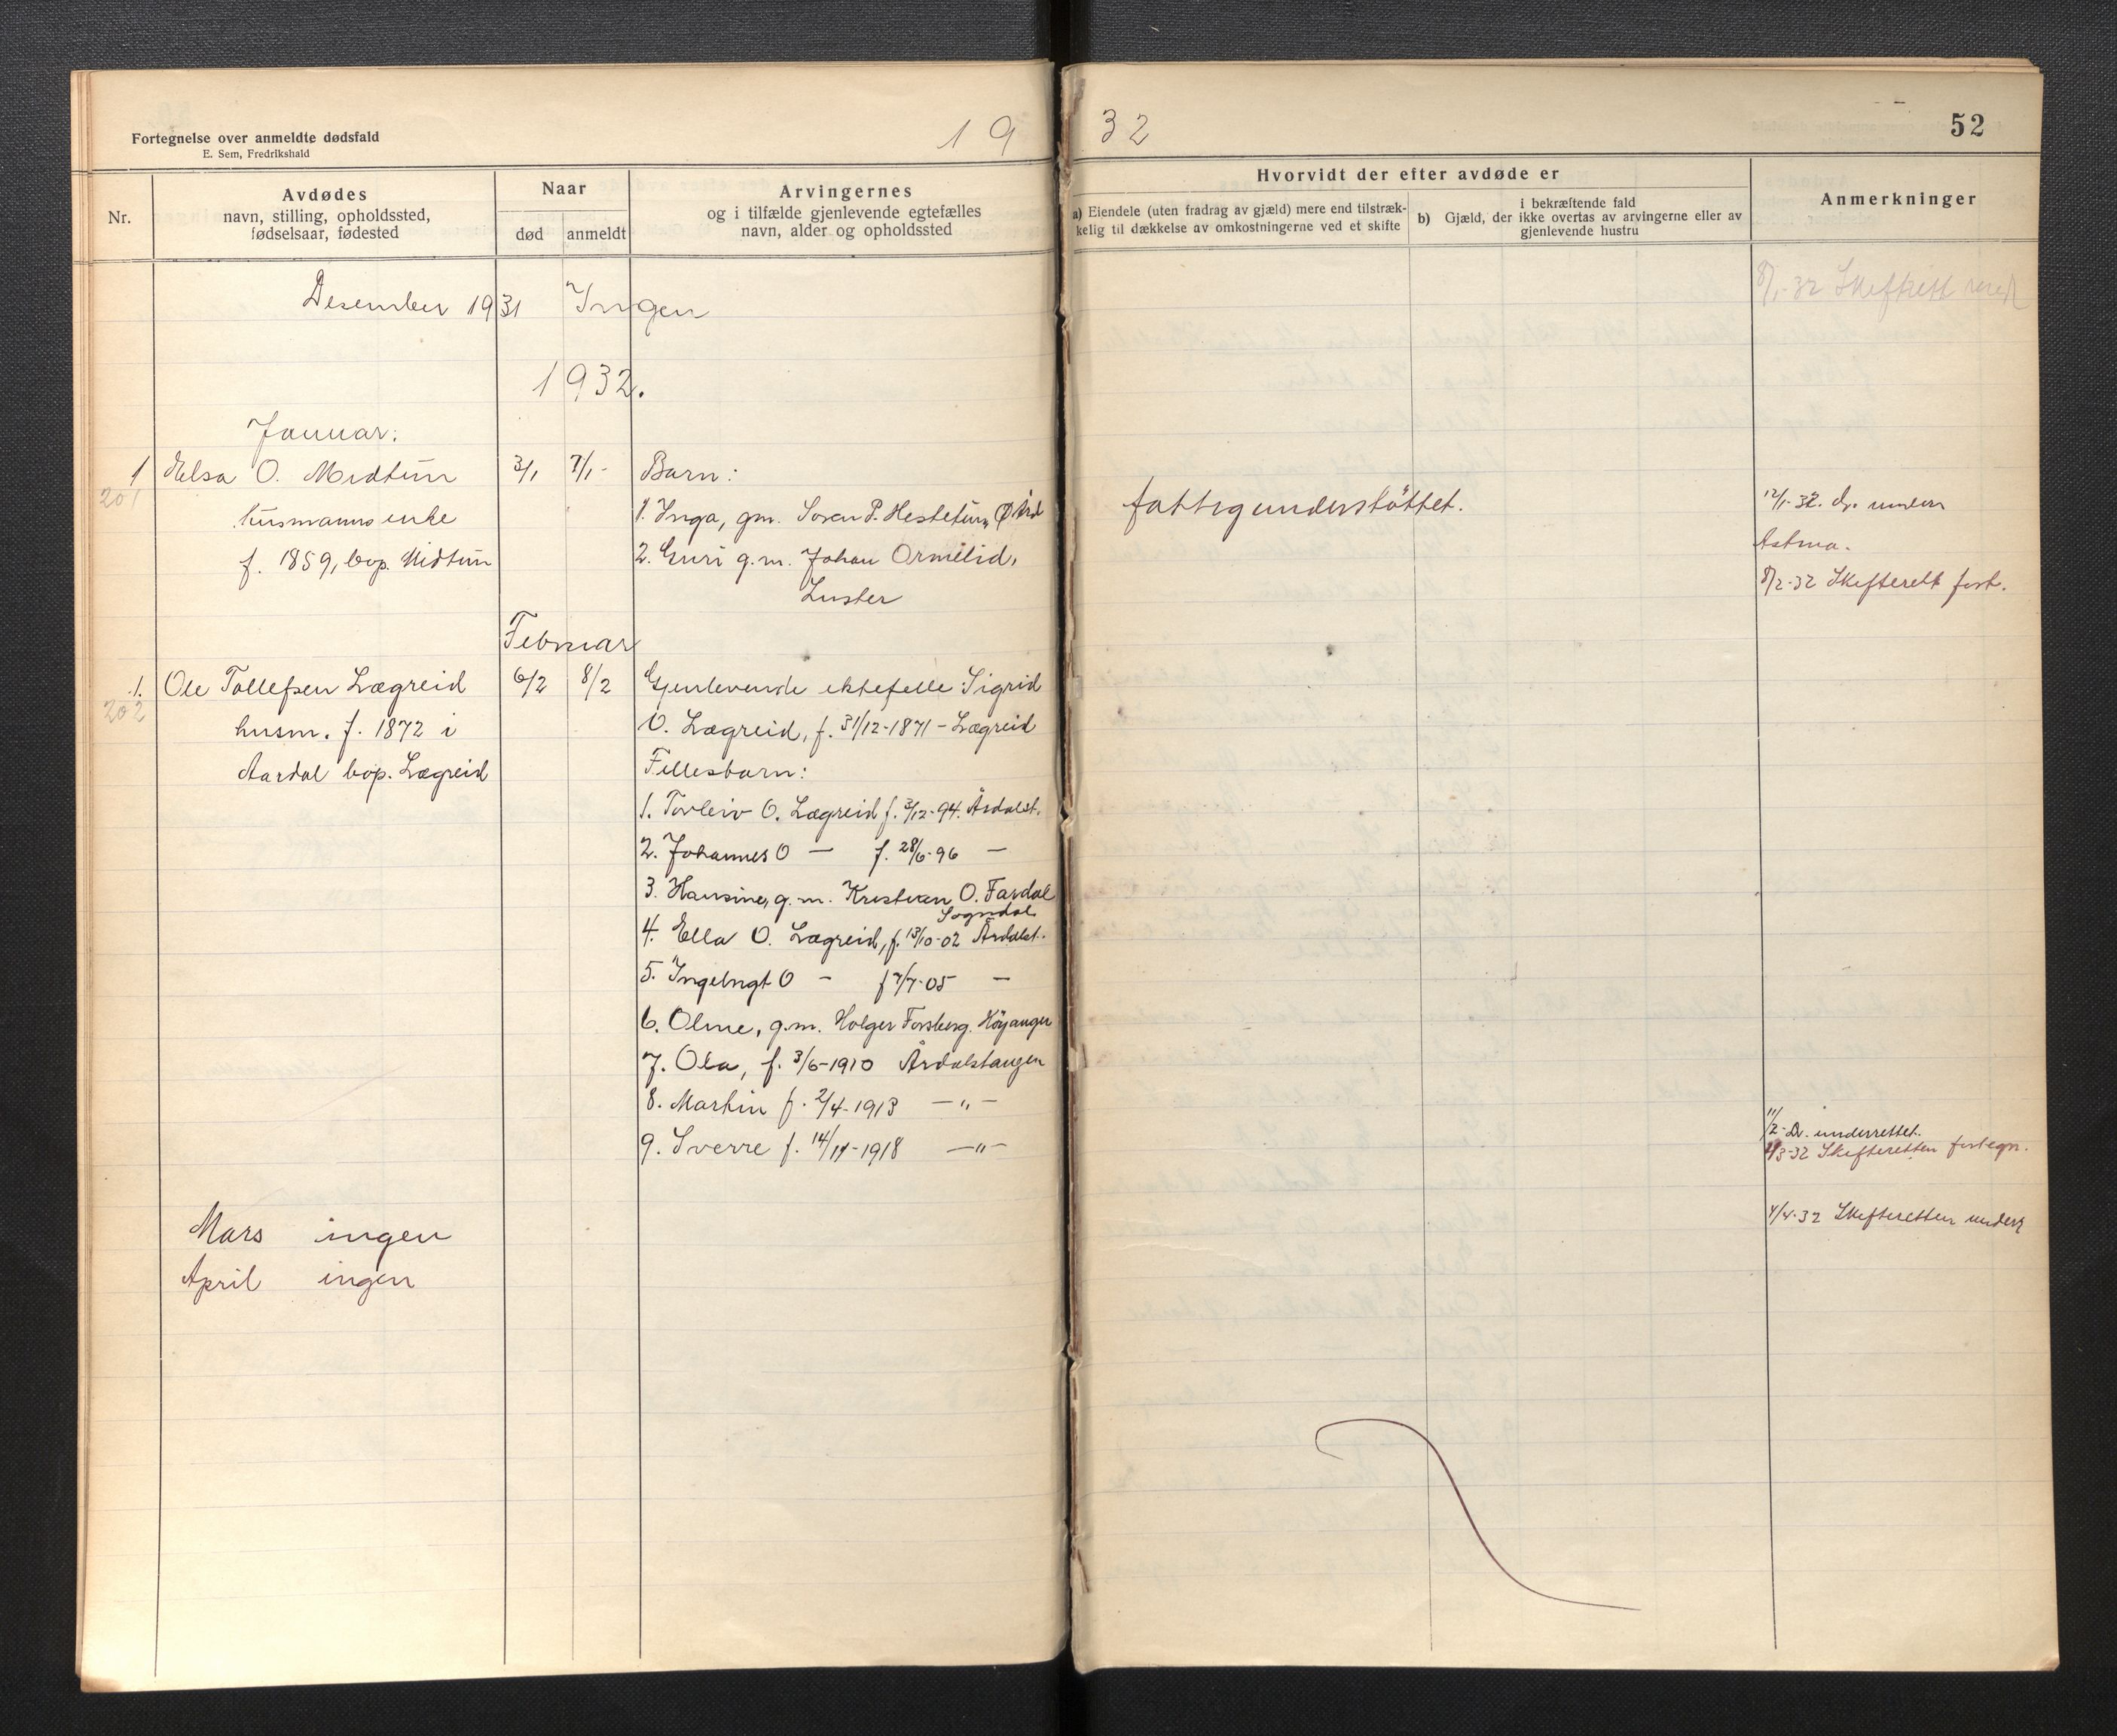 Fortegnelse over anmeldte dødsfald
E. Sem, Fredrikshald
19
32
52
Nr.
Avdødes
navn, stilling, opholdssted,
fødselsaar, fødested
Naar
død
anmeldt
Arvingernes
og i tilfælde gjenlevende egtefælles
navn, alder og opholdssted
Hvorvidt der efter avdøde er
a) Eiendele (uten fradrag av gjæld) mere end tilstræk-
kelig til dækkelse av omkostningerne ved et skifte
i bekræftende fald
b) Gjæld, der ikke overtas av arvingerne eller av
gjenlevende hustru
Anmerkninger
Desember 1931 Ingen
8/1-32 Skifterett
1932.
Januar:
1 Elsa O. Midtun 3/1 7/1- Barn:
201
husmanns enke 1. Inga, gm. Søren P. Hestetun, Ø Ård
fattigunderstöttet.
12/1-32. dr. underr
f. 1859, bop. Midtun 2. Guri g.m. Johan Ormelid,
Astma.
Luster
8/2-32 Skifterett fort.
Februar
1. Ole Tollefsen Lægreid 6/2 8/2 Gjenlevende ektefelle: Sigrid
202
husm. f. 1872 i O. Lægreid, f. 31/12-1871 - Lægreid
Aardal bop. Lægreid Fellesbarn:
1. Torleiv O. Lægreid f. 3/12-94. Årdalst.
2. Johannes O — f. 28/6-96 —
3. Hansine, g.m. Kristian O. Fardal
Sogndal
4. Ella O. Lægreid, f. 13/10-02 Årdalst.
5. Ingebrigt O — f 7/7-05 —
6. Oline, g.m. Holger Forsberg. Höyanger
7. Ola, f. 3/6-1910 Årdalstangen
8. Martin f. 2/4-1913 —"—
9. Sverre f. 14/11-1918 —"—
11/2- Dr. underrettet.
3-32 Skifteretten fortegn.
Mars ingen
4/4-32 Skifteretten underr
April ingen